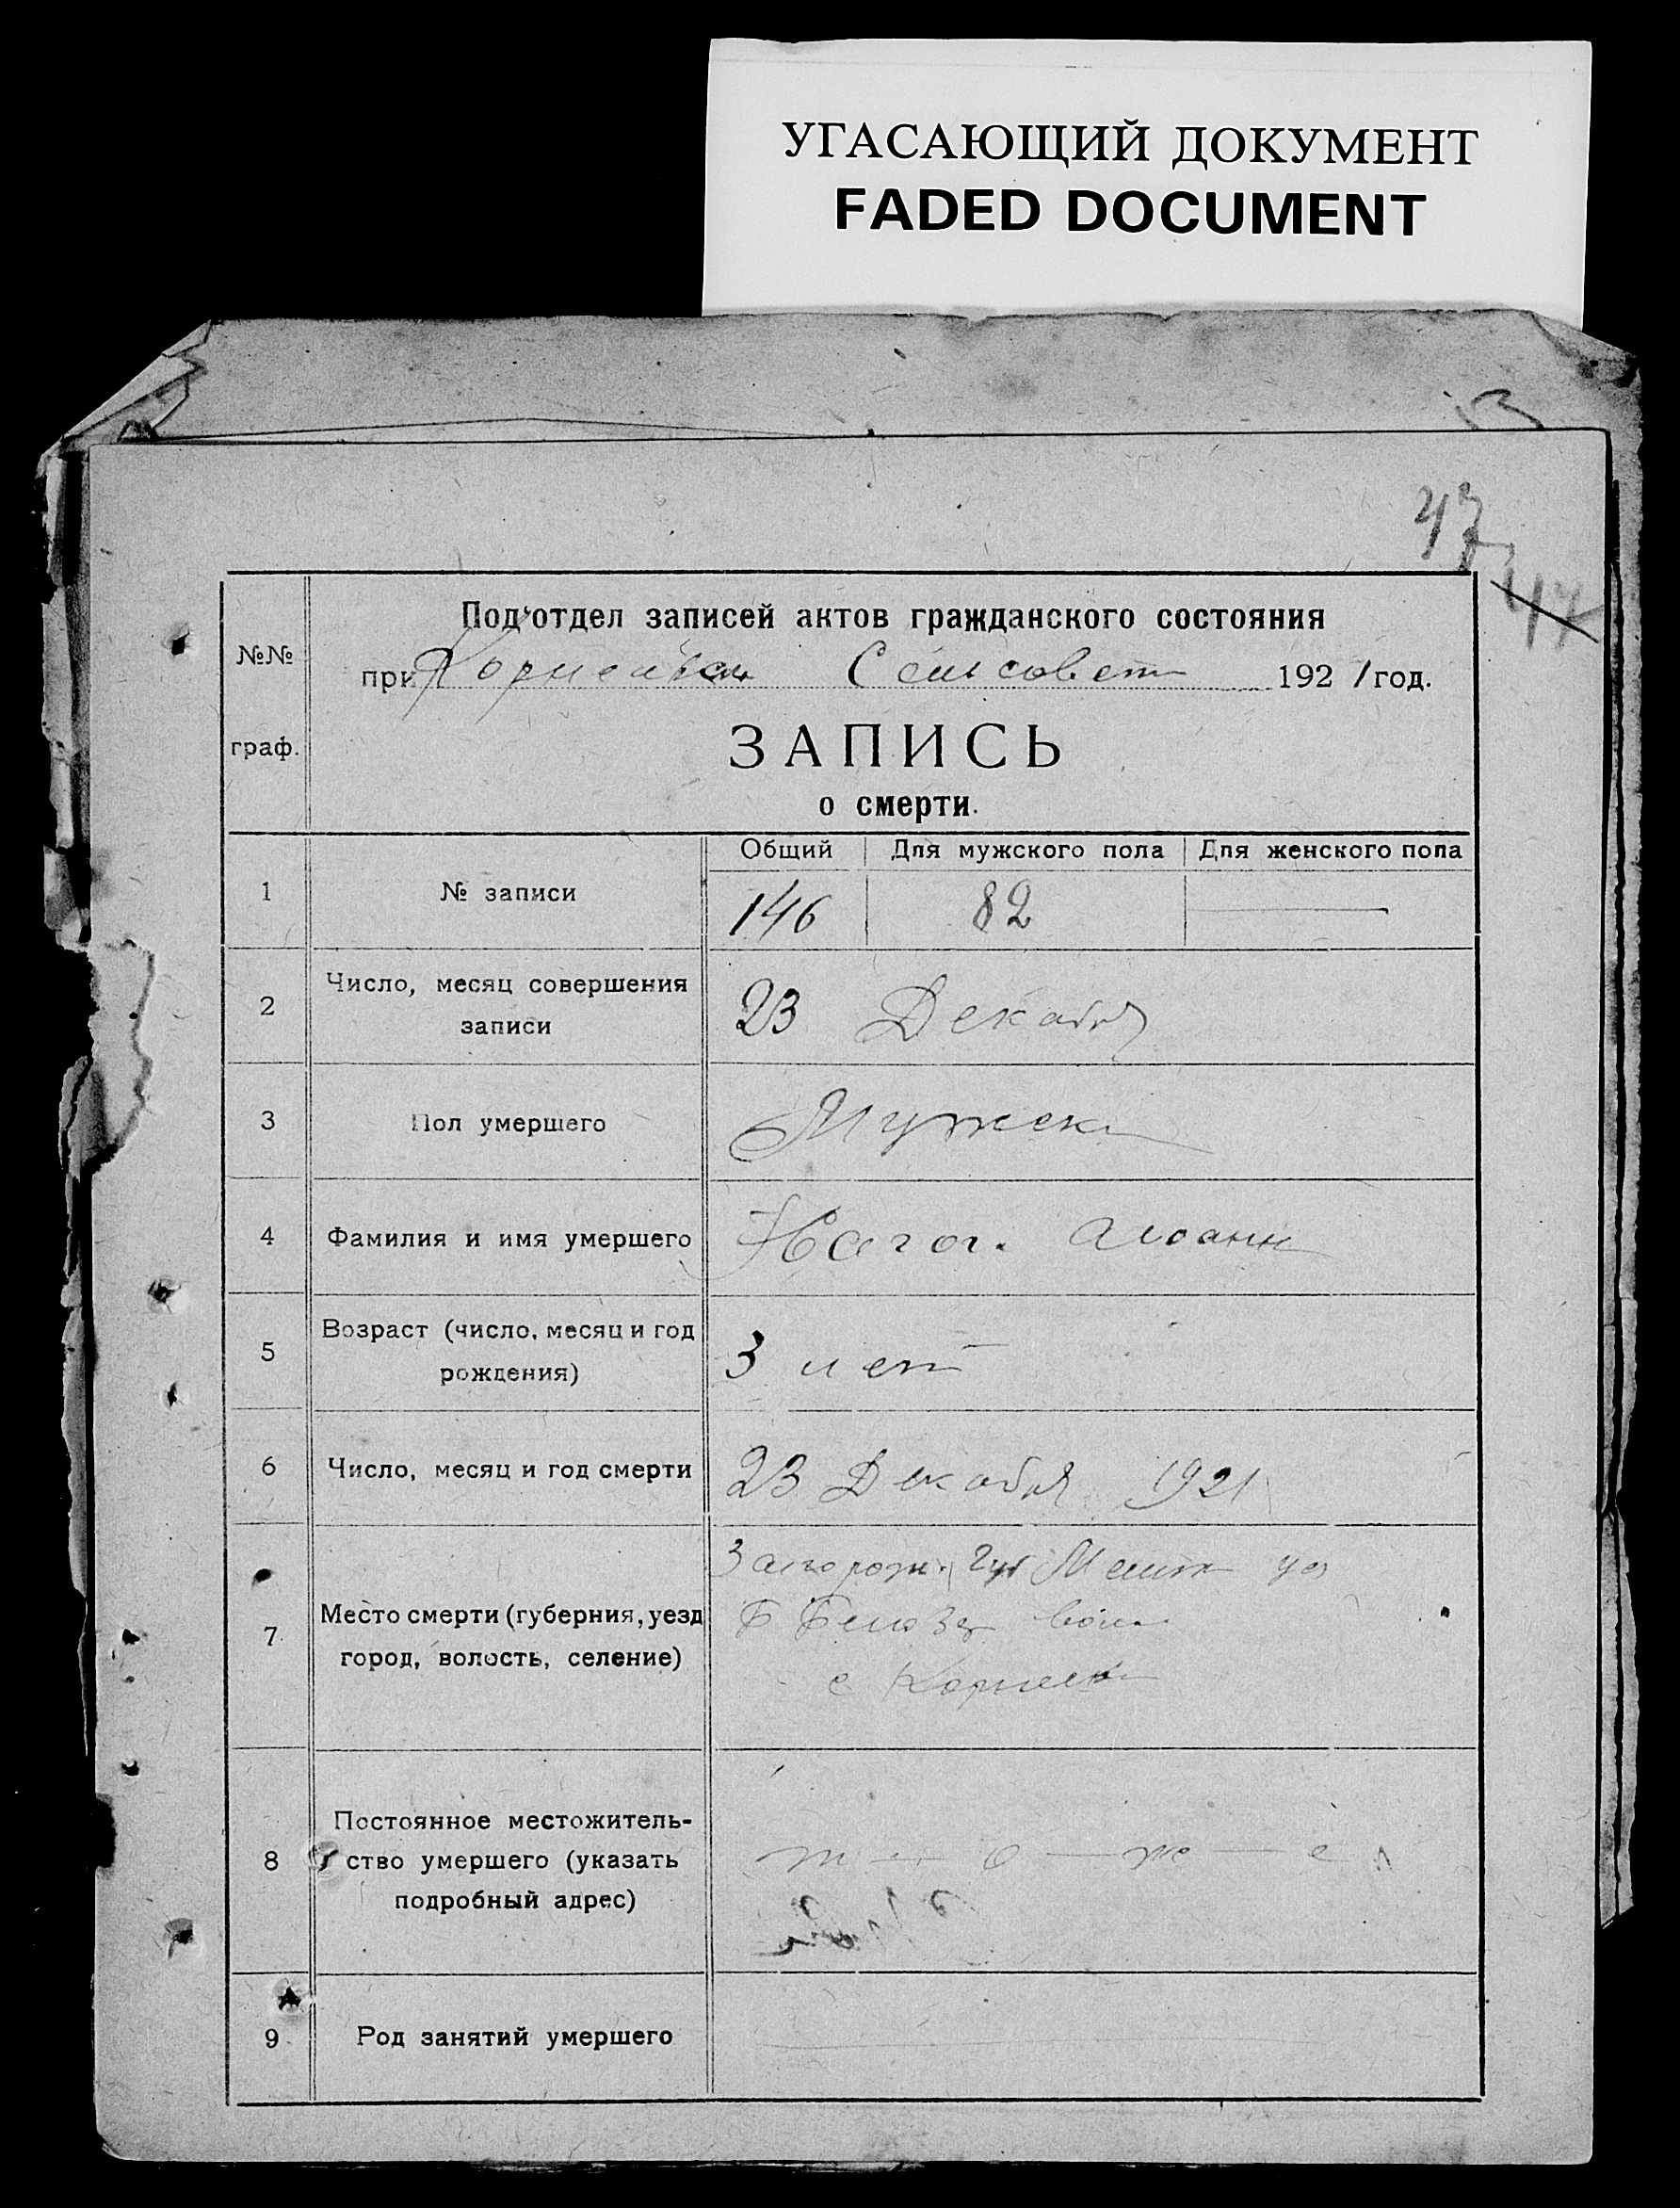 УГАСАЮЩИЙ ДОКУМЕНТ
FADED DOCUMENT
47
44
№№
граф.
Подотдел записей актов гражданского состояния
при Сельсовет 1921 год.
ЗАПИСЬ
о смерти.
Общий Для мужского пола Для женского пола
1 № записи 146 82
2 Число, месяц совершения
записи 23 Декабря
3 Пол умершего Мужск
4 Фамилия и имя умершего
5 Возраст (число, месяц и год
рождения) 3 лет
6 Число, месяц и год смерти 23 Декабря 1921
7 Место смерти (губерния, уезд
город, волость, селение)
Запорож. губ Мелит уез
вол
с
8 Постоянное местожитель-
ство умершего (указать
подробный адрес)
т — о — же — е
9 Род занятий умершего